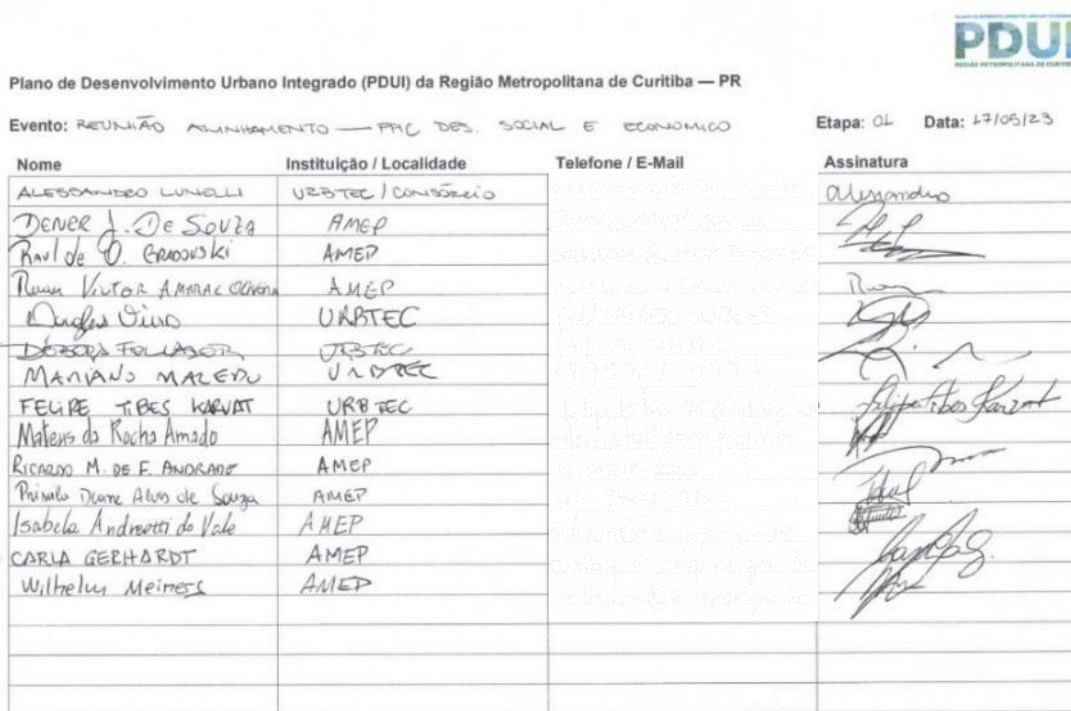 PDUI
REGIÃO METROPOLITANA DE CURITIBA
Plano de Desenvolvimento Urbano Integrado (PDUI) da Região Metropolitana de Curitiba — PR
Evento: REUNIÃO ALINHAMENTO — PMC DES. SOCIAL E ECONOMICO Etapa: 01 Data: 17/05/23
Nome Instituição / Localidade Telefone / E-Mail Assinatura
ALESSANDRO LUNELLI URBTEC / CONSÓRCIO Alessandro
DENER J. De SOUZA AMEP
Raul de O. GRADOVSKI AMEP
VICTOR AMARAL OLIVEIRA AMEP
Douglas URBTEC
DÉBORA FOLLADOR URBTEC
MARIANO MACEDO URBTEC
FELIPE TIBES KARVAT URBTEC Felipe Tibes Karvat
Mateus da Rocha Amado AMEP
RICARDO M. DE F. ANDRADE AMEP
Alves de Souza AMEP
Isabela Andreotti do Vale AMEP
CARLA GERHARDT AMEP
Wilhelm Meiners AMEP